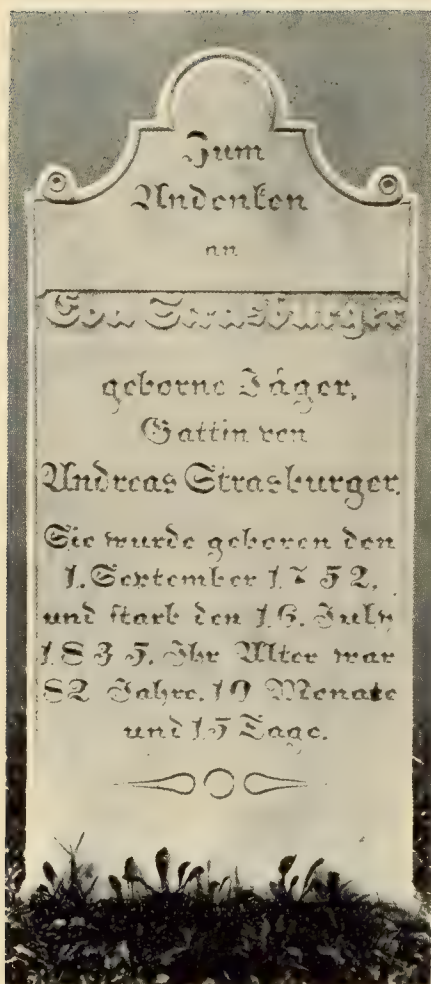 Zum
Andenken
an
Eva Strasburger
geborne Jäger,
Gattin von
Andreas Strasburger.
Sie wurde geboren den
1. September 1752,
und starb den 16. July
1835. Ihr Alter war
82 Jahre, 10 Monate
und 15 Tage.